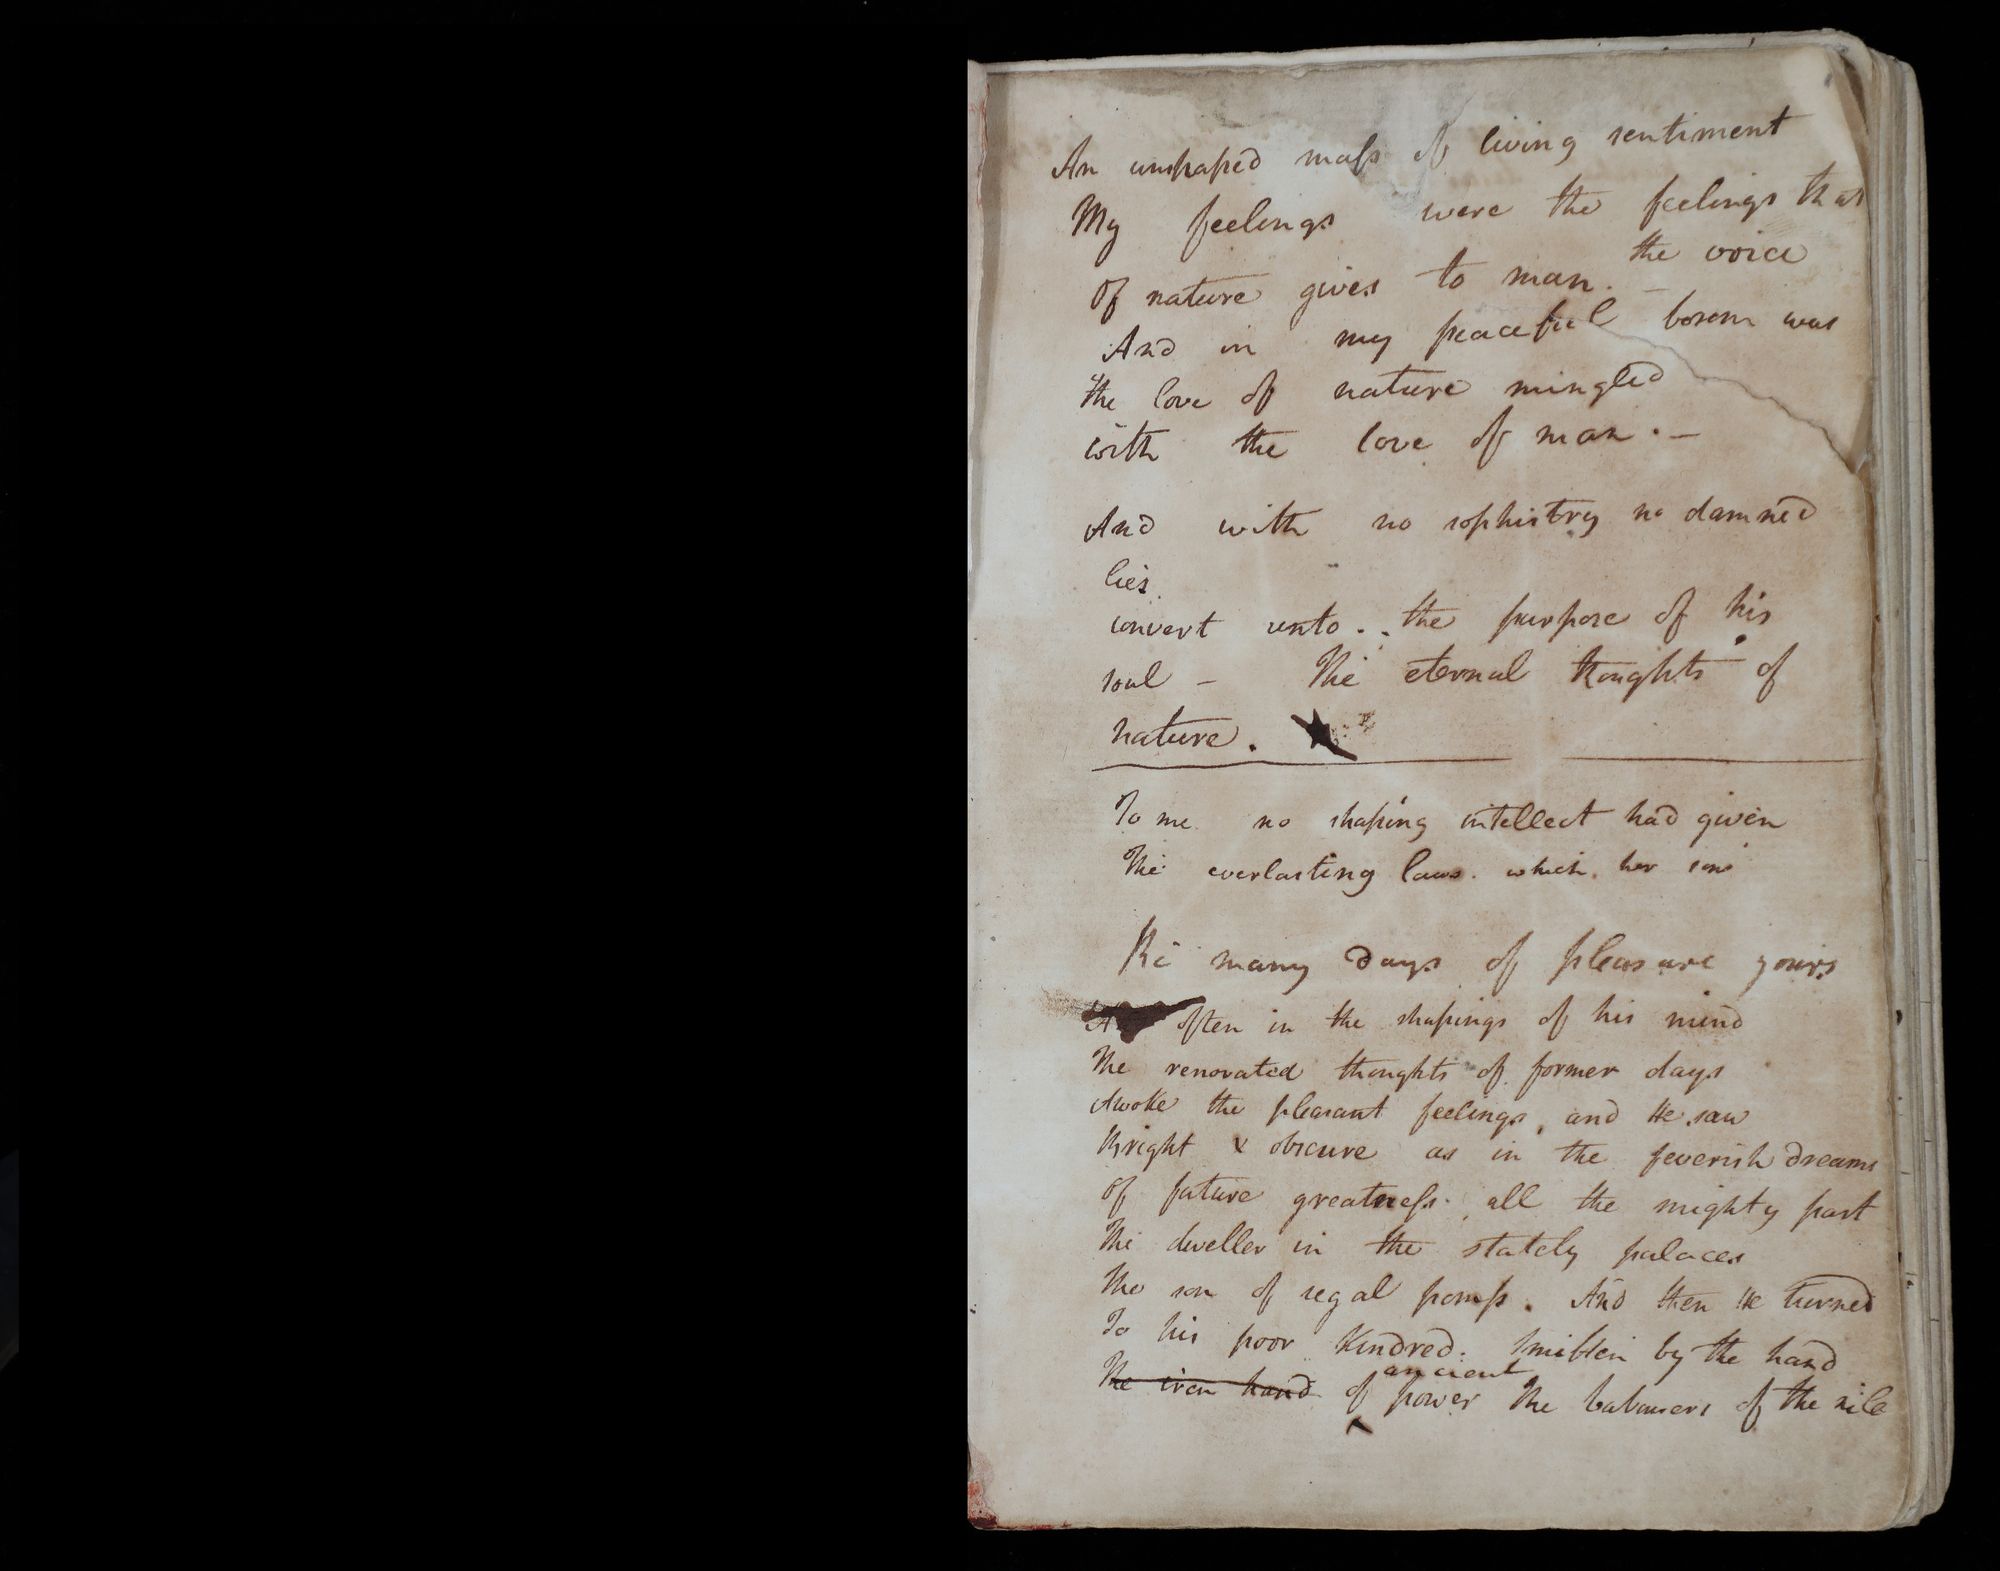 An unshaped mass of living sentiment
My feelings were the feelings that
the voice
Of nature gives to man. –
And in my peaceful bosom was
the love of nature mingled
with the love of man. –
And with no sophistry no damned
lies
convert unto . . the purpose of his
soul – The eternal thoughts of
nature.
To me no shaping intellect had given
The everlasting laws. which her sons
The many days of pleasure yours
often in the shapings of his mind
The renovated thoughts of former days
Awoke the pleasant feelings, and He saw
Bright & obscure as in the feverish dreams
Of future greatness. all the mighty past
The dweller in the stately palaces
The son of regal pomp. And then He turned
To his poor Kindred. Smitten by the hand
ancient
The iron hand of power the labourers of the nile